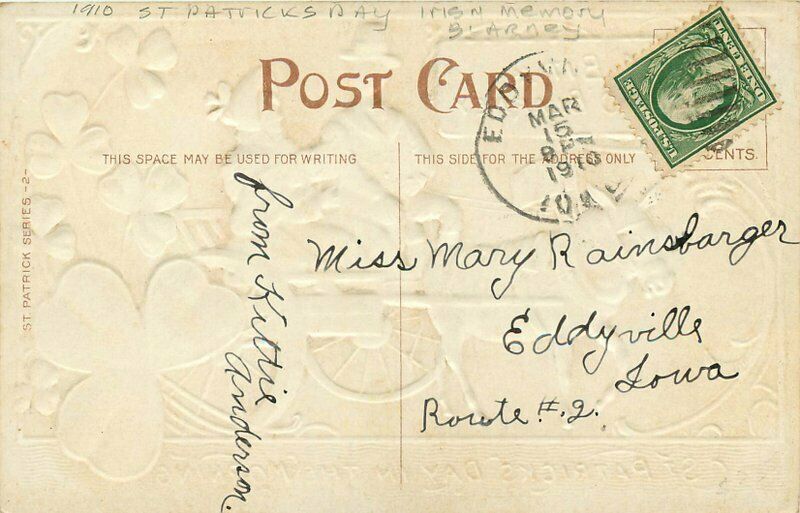 1910 ST PATRICKS DAY IRISH MEMORY
BLARNEY
POST CARD
THIS SPACE MAY BE USED FOR WRITING
THIS SIDE FOR THE ADDRESS ONLY
CENTS.
U.S. POSTAGE
ONE CENT
EDDYV
MAR
15
1910
IOWA
from Kittie
Anderson.
Miss Mary Rainsbarger
Eddyville
Iowa
Route #. 2.
ST. PATRICK SERIES -2-
ST PATRICK'S DAY IN THE MORNING